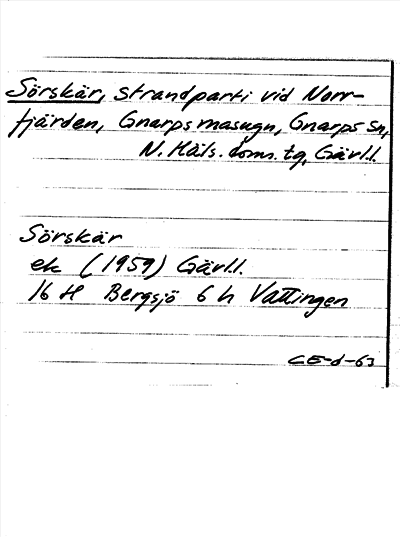 Sörskär, strandparti vid Norr-
fjärden, Gnarps masugn, Gnarps sn,
N. Häls. doms. tg, Gävl.l.
Sörskär
ek (1959) Gävl.l.
16 H Bergsjö 6 h Vattingen
CE-d-63